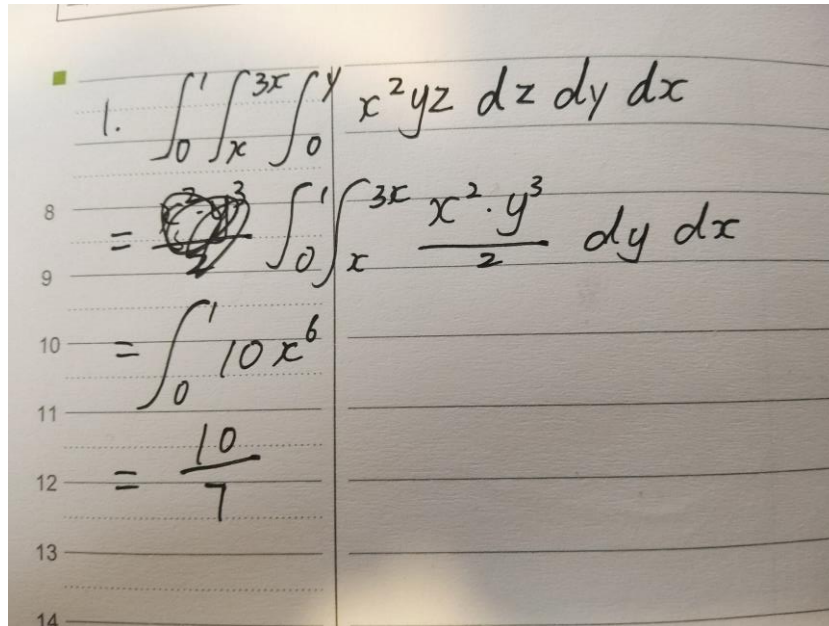 1. ∫₀¹ ∫ₓ³ˣ ∫₀ʸ x²yz dz dy dx
8
= ∫₀¹ ∫ₓ³ˣ x²·y³/2 dy dx
9
10 = ∫₀¹ 10x⁶
11
12 = 10/7
13
14